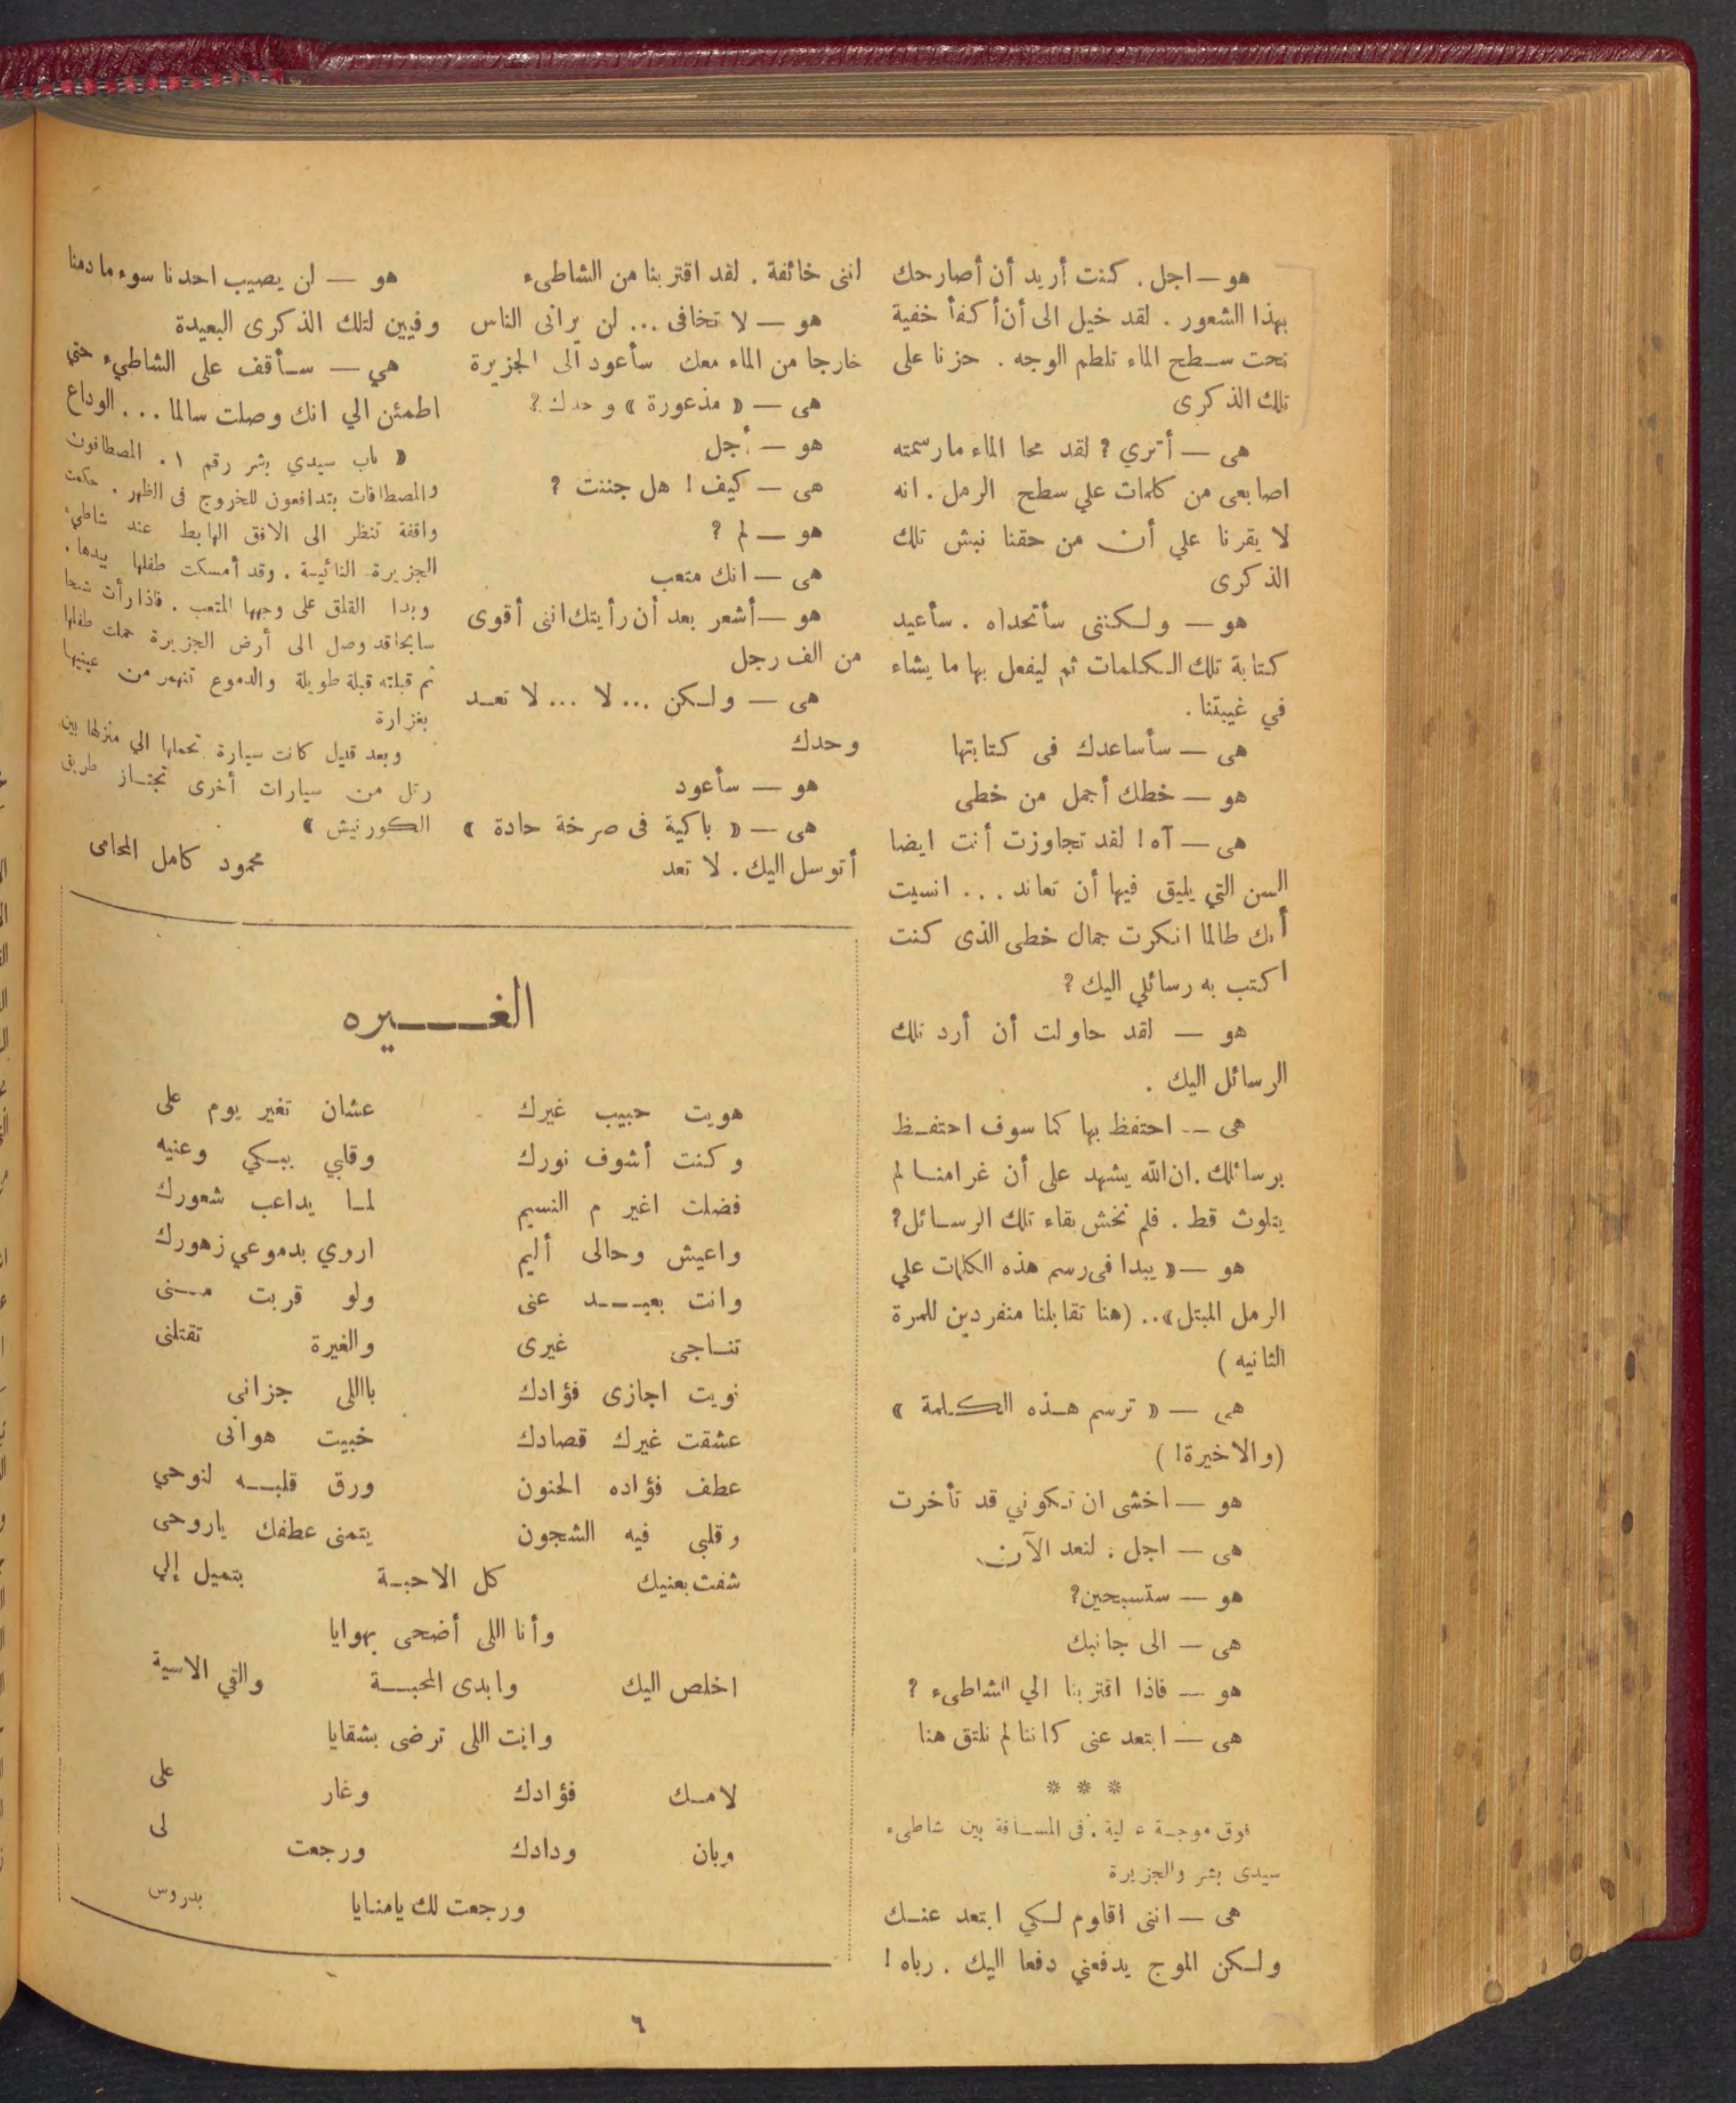 هو — اجل . كنت أريد أن أصارحك
بهذا الشعور . لقد خيل الى أن أكفأ خفية
تحت سطح الماء تلطم الوجه . حزنا على
تلك الذكرى
هى — أترى ؟ لقد محا الماء ما رسمته
اصابعى من كلمات علي سطح الرمل . انه
لا يقرنا علي أن من حقنا نبش تلك
الذكرى
هو — ولكننى سأتحداه . سأعيد
كتابة تلك الكلمات ثم ليفعل بها ما يشاء
في غيبتنا .
هى — سأساعدك فى كتابتها
هو — خطك أجمل من خطى
هى — آه ! لقد تجاوزت أنت ايضا
السن التي يليق فيها أن تعاند ... انسيت
أنك طالما انكرت جمال خطى الذى كنت
اكتب به رسائلي اليك ؟
هو — لقد حاولت أن أرد تلك
الرسائل اليك .
هى — احتفظ بها كما سوف احتفظ
برسائلك . ان الله يشهد على أن غرامنا لم
يتلوث قط . فلم تخش بقاء تلك الرسائل ؟
هو — « يبدا فى رسم هذه الكلمات علي
الرمل المبتل » .. ( هنا تقابلنا منفردين للمرة
الثانيه )
هى — « ترسم هذه الكلمة »
( والاخيرة ! )
هو — اخشى ان تكوني قد تأخرت
هى — اجل . لنعد الآن
هو — ستسبحين ؟
هى — الى جانبك
هو — فاذا اقتربنا الي الشاطىء ؟
هى — ابتعد عنى كاننا لم نلتق هنا
* * *
فوق موجة عالية . فى المسافة بين شاطىء
سيدى بشر والجزيرة
هى — اننى اقاوم لكي ابتعد عنك
ولكن الموج يدفعني دفعا اليك . رباه !
اننى خائفة . لقد اقتربنا من الشاطىء
هو — لا تخافى ... لن يرانى الناس
خارجا من الماء معك سأعود الى الجزيرة
هى — « مذعورة » وحدك ؟
هو — أجل
هى — كيف ! هل جننت ؟
هو — لم ؟
هى — انك متعب
هو — أشعر بعد أن رأيتك اننى أقوى
من الف رجل
هى — ولكن ... لا ... لا تعد
وحدك
هو — سأعود
هى — « باكية فى صرخة حادة »
أتوسل اليك . لا تعد
هو — لن يصيب احدنا سوء ما دمنا
وفيين لتلك الذكرى البعيدة
هي — سأقف على الشاطيء حتى
اطمئن الي انك وصلت سالما ... الوداع
« باب سيدي بشر رقم ١ . المصطافون
والمصطافات يتدافعون للخروج فى الظهر . حكمت
واقفة تنظر الى الافق الهابط عند شاطيء
الجزيرة النائية . وقد أمسكت طفلها بيدها .
وبدا القلق على وجهها المتعب . فاذا رأت شبحا
سابحا قد وصل الى أرض الجزيرة حملت طفلها
ثم قبلته قبلة طويلة والدموع تنهمر من عينيها
بغزارة
وبعد قليل كانت سيارة تحملها الي منزلها بين
رتل من سيارات أخرى تجتاز طريق
الكورنيش »
محمود كامل المحامى
الغيره
هويت حبيب غيرك عشان تغير يوم على
وكنت أشوف نورك وقلبي يبكي وعنيه
فضلت اغير م النسيم لما يداعب شعورك
واعيش وحالى أليم اروي بدموعي زهورك
وانت بعيد عنى ولو قربت منى
تناجى غيرى والغيرة تقتلنى
نويت اجازى فؤادك باللى جزانى
عشقت غيرك قصادك خبيت هوانى
عطف فؤاده الحنون ورق قلبه لنوحي
وقلبى فيه الشجون يتمنى عطفك ياروحى
شفت بعنيك كل الاحبة بتميل إلي
وأنا اللى أضحى بهوايا
اخلص اليك وابدى المحبة والقي الاسية
وانت اللى ترضى بشقايا
لامك فؤادك وغار على
وبان ودادك ورجعت لى
ورجعت لك يامنايا
بدروس
٦